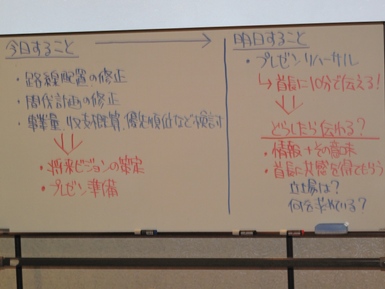 今日すること
・路線配置の修正
・周伐計画の修正
・事業量、収支概算、優先順位など検討
・将来ビジョンの策定
・プレゼン準備
明日すること
・プレゼンリハーサル
↳首長に10分で伝える!
どうしたら伝わる?
・情報+その意味
・首長に共感を得てもらう
立場は?
何を求めている?